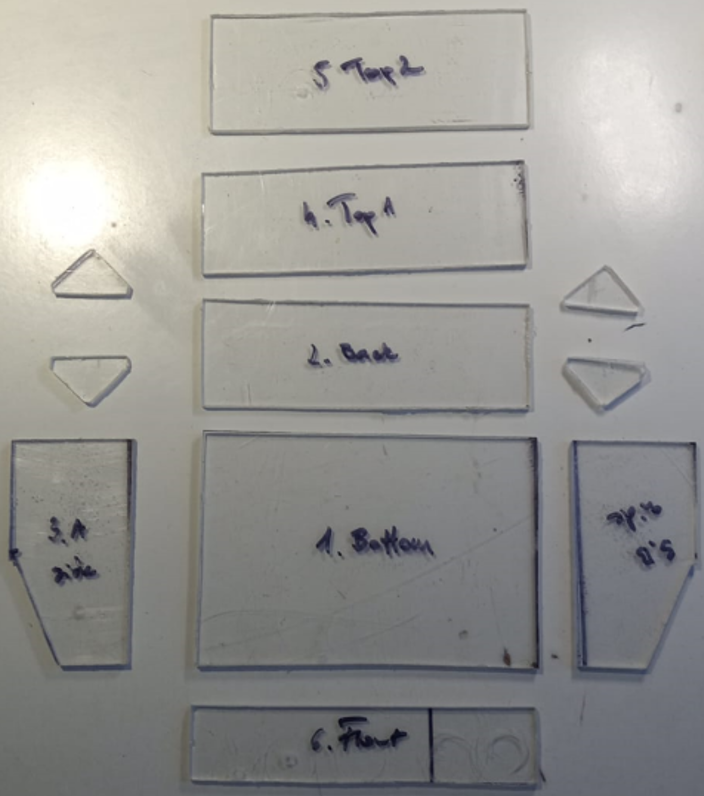 5 Top 2
4. Top 1
2. Back
3.A
side
1. Bottom
side
3.B
6. Front